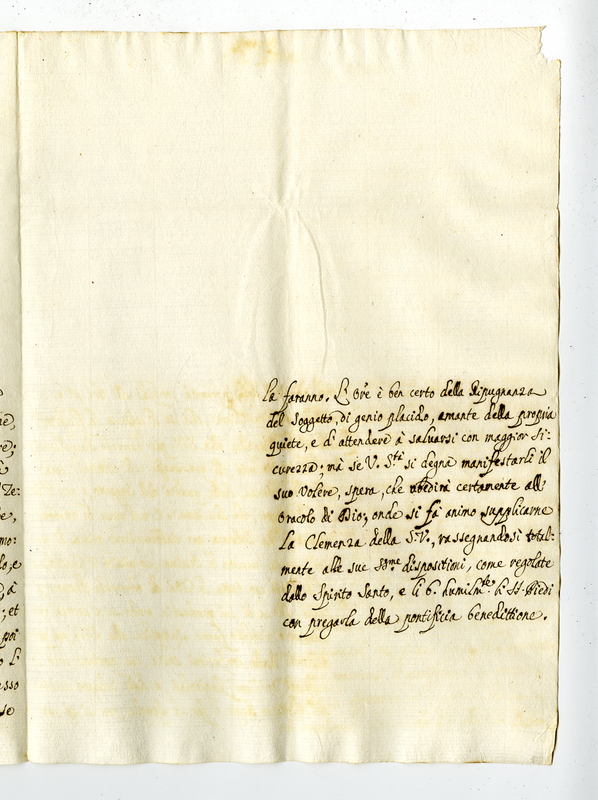 la faranno. L'Ore è ben certo della Ripugnanza
del Soggetto, di genio placido, amante della propria
quiete, e d'attendere à salvarsi con maggior si:
curezza; mà se V. Stà si degna manifestarli il
suo Volere, spera, che obedirà certamente all'
Oracolo di Dio; onde si fà animo supplicarne
La Clemenza della S.V., rassegnandosi total:
mente alle sue SSme dispositioni, come regolate
dallo Spirito Santo, e li b. humilmte li SS. Piedi
con pregarla della pontificia benedittione.
poi